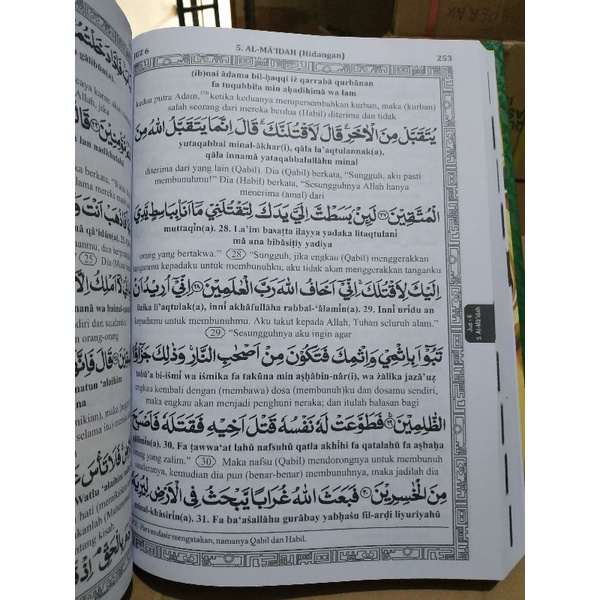 JUZ 6
5. AL-MĀ'IDAH (Hidangan)
253
(ib)nai ādama bil-ḥaqqi iż qarrabā qurbānan
fa tuqubbila min aḥadihimā wa lam
kedua putra Adam, ketika keduanya mempersembahkan kurban, maka (kurban)
salah seorang dari mereka berdua (Habil) diterima dan tidak
يُتَقَبَّلْ مِنَ الْاٰخَرِۗ قَالَ لَاَقْتُلَنَّكَ ۗ قَالَ اِنَّمَا يَتَقَبَّلُ اللّٰهُ مِنَ
yutaqabbal minal-ākhar(i), qāla la'aqtulannak(a),
qāla innamā yataqabbalullāhu minal
diterima dari yang lain (Qabil). Dia (Qabil) berkata, "Sungguh, aku pasti
membunuhmu!" Dia (Habil) berkata, "Sesungguhnya Allah hanya
menerima (amal) dari
الْمُتَّقِيْنَ ۝٢٧ لَىِٕنْۢ بَسَطْتَّ اِلَيَّ يَدَكَ لِتَقْتُلَنِيْ مَآ اَنَا۠ بِبَاسِطٍ يَّدِيَ
muttaqīn(a). 28. La'im basatta ilayya yadaka litaqtulanī
mā ana bibāsiṭiy yadiya
orang yang bertakwa." (28) "Sungguh, jika engkau (Qabil) menggerakkan
tanganmu kepadaku untuk membunuhku, aku tidak akan menggerakkan tanganku
اِلَيْكَ لِاَقْتُلَكَۚ اِنِّيْٓ اَخَافُ اللّٰهَ رَبَّ الْعٰلَمِيْنَ ۝٢٨ اِنِّيْٓ اُرِيْدُ اَنْ
ilaika li'aqtulak(a), innī akhāfullāha rabbal-'ālamīn(a). 29. Innī urīdu an
kepadamu untuk membunuhmu. Aku takut kepada Allah, Tuhan seluruh alam."
(29) "Sesungguhnya aku ingin agar
تَبُوْۤاَ بِاِثْمِيْ وَاِثْمِكَ فَتَكُوْنَ مِنْ اَصْحٰبِ النَّارِۚ وَذٰلِكَ جَزٰۤؤُا
tabū'a bi-iṡmī wa iṡmika fa takūna min aṣḥābin-nār(i), wa żālika jazā'uẓ
engkau kembali dengan (membawa) dosa (membunuh)ku dan dosamu sendiri,
maka engkau akan menjadi penghuni neraka; dan itulah balasan bagi
الظّٰلِمِيْنَۚ ۝٢٩ فَطَوَّعَتْ لَهٗ نَفْسُهٗ قَتْلَ اَخِيْهِ فَقَتَلَهٗ فَاَصْبَحَ
ẓālimīn(a). 30. Fa ṭawwa'at lahū nafsuhū qatla akhīhi fa qatalahū fa aṣbaḥa
orang yang zalim." (30) Maka nafsu (Qabil) mendorongnya untuk membunuh
saudaranya, kemudian dia pun (benar-benar) membunuhnya, maka jadilah dia
مِنَ الْخٰسِرِيْنَ ۝٣٠ فَبَعَثَ اللّٰهُ غُرَابًا يَّبْحَثُ فِى الْاَرْضِ لِيُرِيَهٗ
minal-khāsirīn(a). 31. Fa ba'aṡallāhu gurābay yabḥaṡu fil-arḍi liyuriyahū
Para mufasir mengatakan, namanya Qabil dan Habil.
Juz - 6
5. Al-Mā'idah